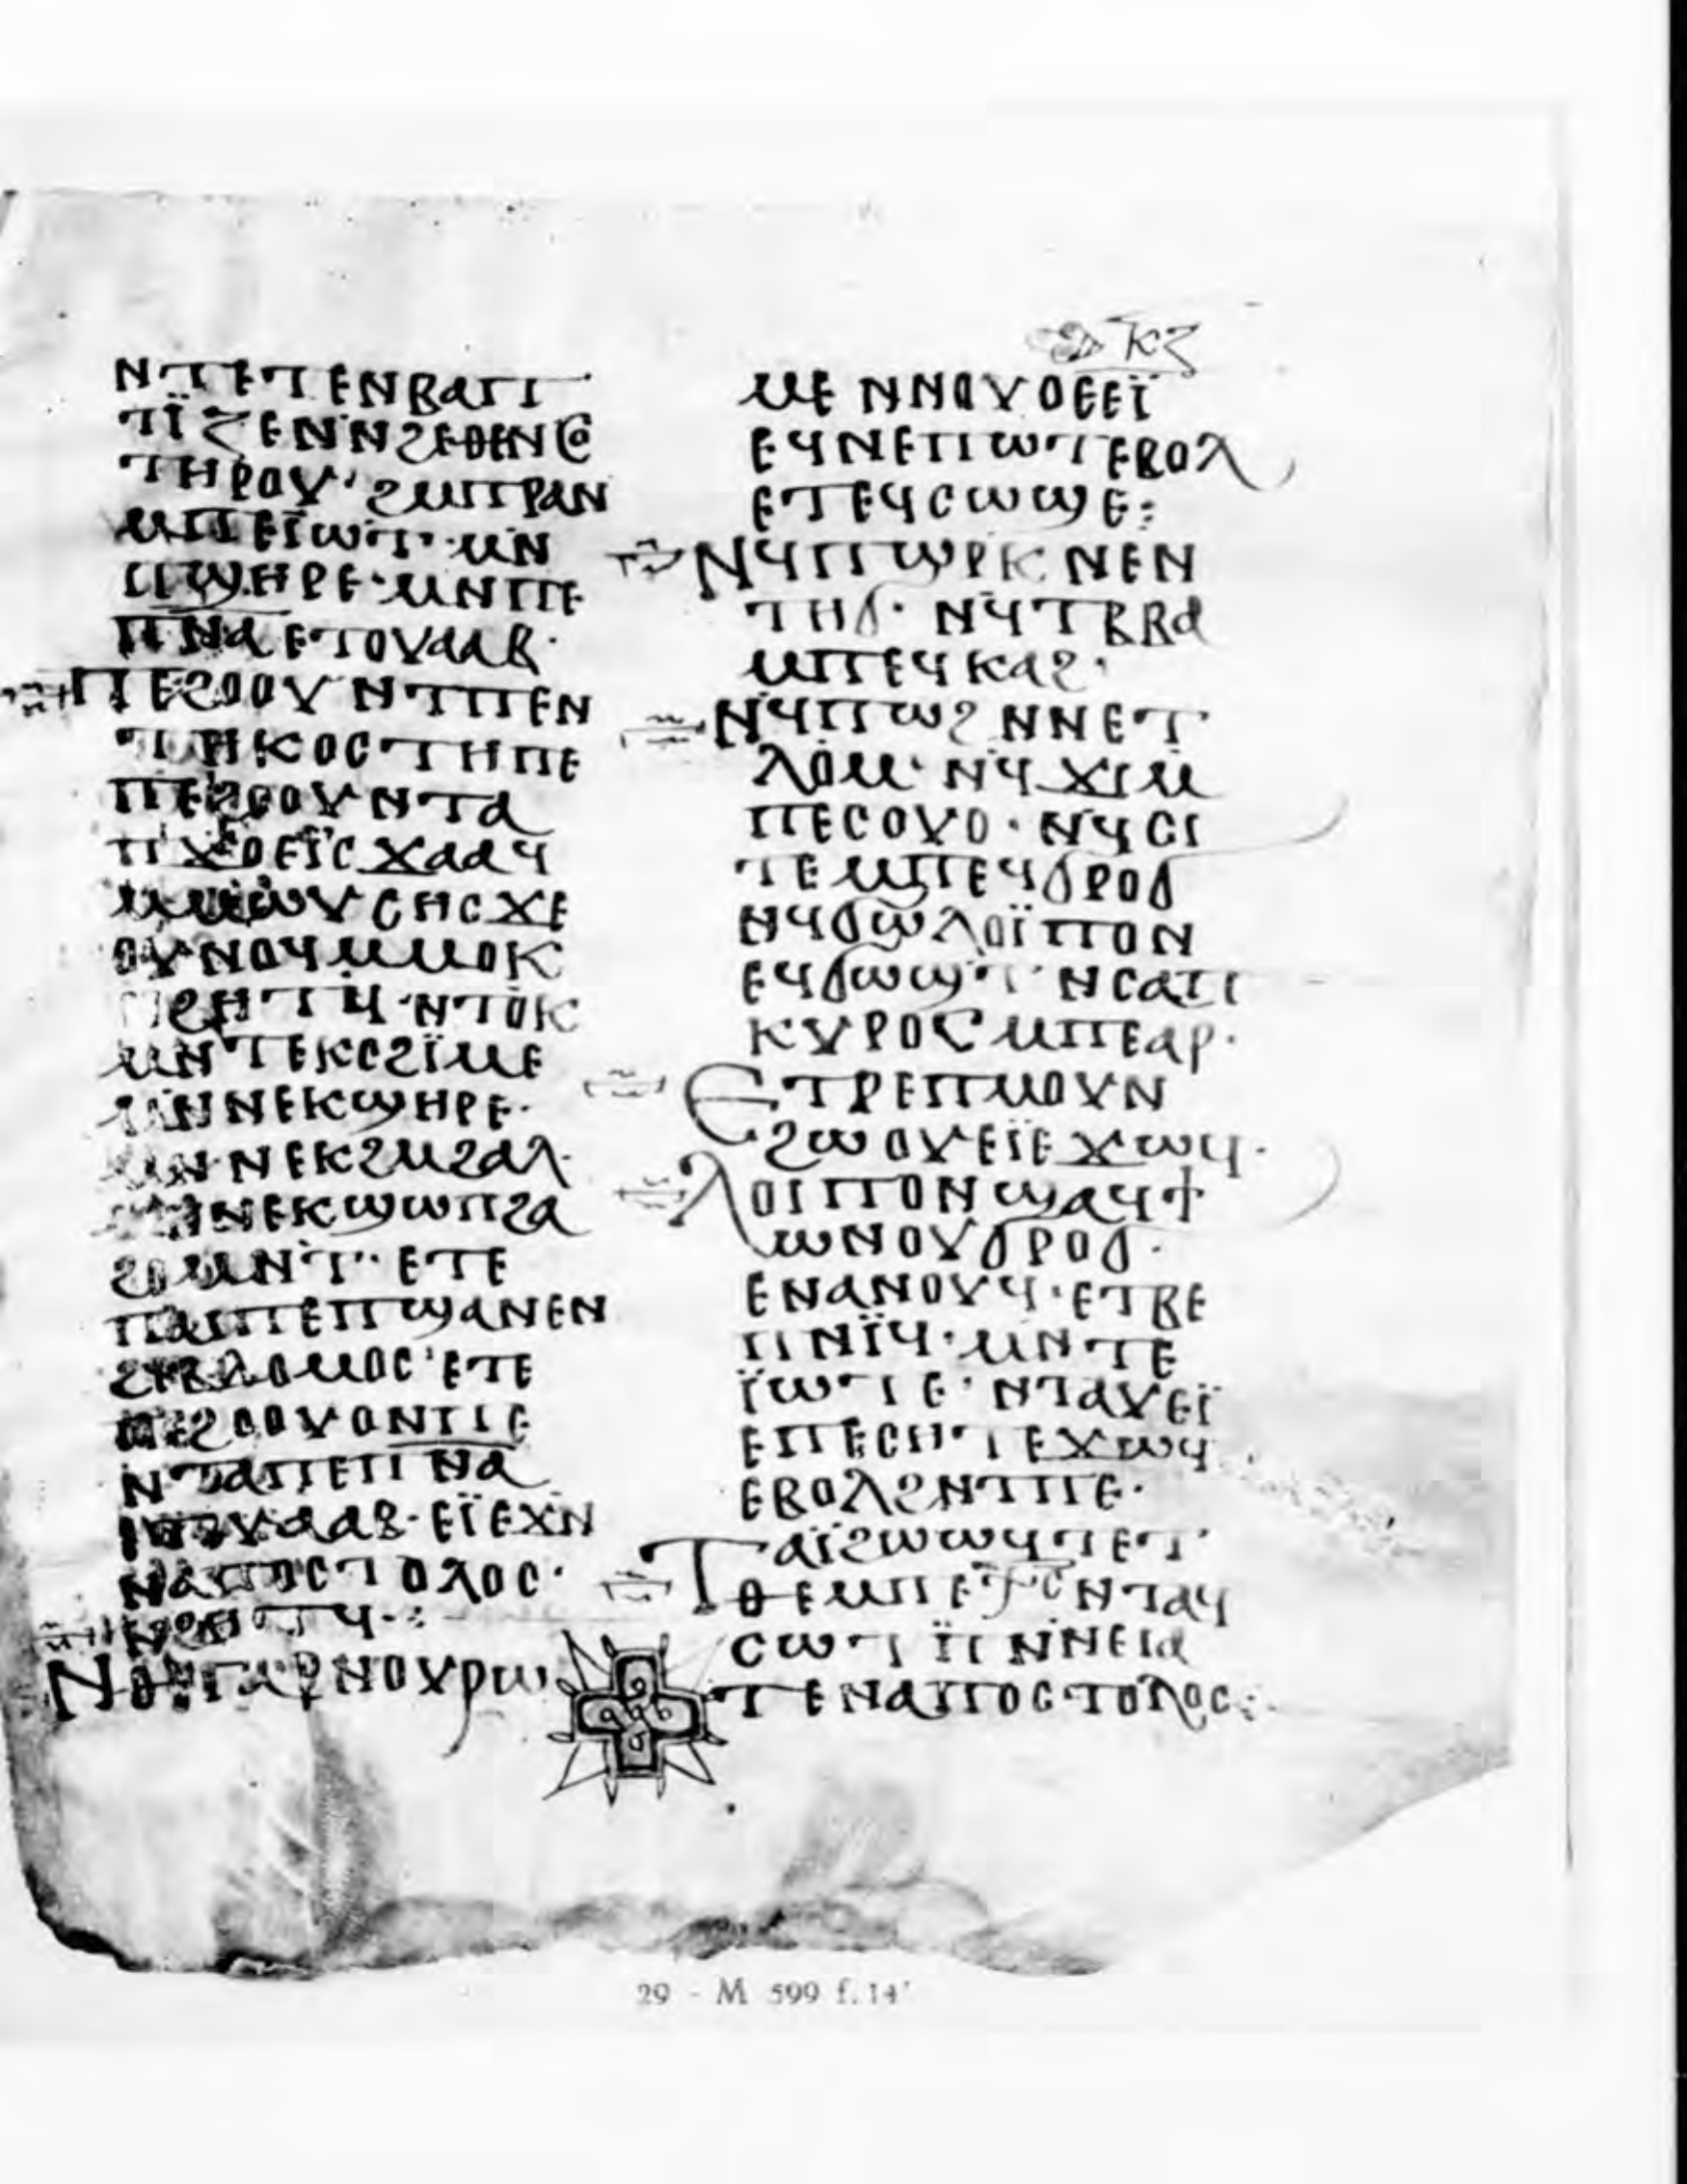 ⲕⲍ
ⲛⲧⲉⲧⲉⲛⲃⲁⲡ
ⲧⲓ̈ⲍⲉⲛⲛ̄ϩⲉⲑⲉⲛⲟⲥ
ⲧⲏⲣⲟⲩ· ϩⲙⲡⲣⲁⲛ
ⲙⲡⲉⲓ̈ⲱⲧ· ⲙⲛ
ⲡϣⲏⲣⲉ· ⲙⲛⲡⲉ
ⲡ̅ⲛ̅ⲁ̅ ⲉⲧⲟⲩⲁⲁⲃ·
ⲡⲉϩⲟⲟⲩ ⲛⲧⲡⲉⲛ
ⲧⲏⲕⲟⲥⲧⲏⲡⲉ
ⲡⲉϩⲟⲟⲩⲛⲧⲁ
ⲡϫⲟⲉⲓ̈ⲥ ϫⲁⲁϥ
ⲙⲙⲱⲩⲥⲏⲥ ϫⲉ
ⲟⲩⲛⲟϥⲙⲙⲟⲕ
ⲛϩⲏⲧϥ· ⲛⲧⲟⲕ
ⲙⲛⲧⲉⲕⲥϩⲓ̈ⲙⲉ
ⲙⲛⲛⲉⲕϣⲏⲣⲉ·
ⲙⲛ ⲛⲉⲕϩⲙϩⲁⲗ·
ⲙⲛⲛⲉⲕϣⲱⲡϩⲁ
ϩⲟⲙⲛⲧ· ⲉⲧⲉ
ⲡⲁⲡⲉⲡϣⲁⲛⲉⲛ
ϩⲉⲃⲇⲟⲙⲟⲥ· ⲉⲧⲉ
ⲡⲉϩⲟⲟⲩⲟⲛⲡⲉ
ⲛⲧⲁⲡⲉⲡ̅ⲛ̅ⲁ̅
ⲉⲧⲟⲩⲁⲁⲃ· ⲉⲓ̈ⲉϫⲛ̄
ⲛⲁⲡⲟⲥⲧⲟⲗⲟⲥ·
ⲛϩⲏⲧϥ·:
ⲛⲑⲉⲅⲁⲣⲛⲟⲩⲣⲱ
ⲙⲉ ⲛⲛⲟⲩⲟⲉⲉⲓ̈
ⲉϥⲛⲉⲡⲱⲧⲉⲃⲟⲗ
ⲉⲧⲉϥⲥⲱϣⲉ:
ⲛϥⲡⲱⲣⲕ ⲛⲉⲛ
ⲧⲏϭ· ⲛϥⲧⲃⲃⲁ
ⲙⲡⲉϥⲕⲁϩ·
ⲛϥⲡⲱϩ ⲛⲛⲉⲧ
ⲗⲟⲙ· ⲛϥϫⲓⲙ
ⲡⲉⲥⲟⲩⲟ· ⲛϥⲥⲓ
ⲧⲉⲙⲡⲉϥϭⲣⲟϭ
ⲛϥϭⲱⲗⲟⲓ̈ⲡⲟⲛ
ⲉϥϭⲱϣⲧ· ⲛⲥⲁⲡ
ⲕⲩⲣⲟⲥ ⲙⲡⲉⲁⲣ·
ⲉⲧⲣⲉⲡⲙⲟⲩⲛ
ϩⲱⲟⲩⲉⲓ̈ⲉϫⲱϥ·
ⲗⲟⲓⲡⲟⲛ ϣⲁϥϯ
ⲱⲛⲟⲩϭⲣⲟϭ·
ⲉⲛⲁⲛⲟⲩϥ· ⲉⲧⲃⲉ
ⲡⲛⲓ̈ϥ· ⲙⲛ ⲧⲉ
ⲓ̈ⲱⲧⲉ· ⲛⲧⲁⲩⲉⲓ̈
ⲉⲡⲉⲥⲏⲧ ⲉϫⲱϥ
ⲉⲃⲟⲗϩⲛⲧⲡⲉ·
ⲧⲁⲓ̈ϩⲱⲱϥⲧⲉⲧ
ⲑⲉⲙⲡⲉⲭ̅ⲥ̅ⲛⲧⲁϥ
ⲥⲱⲧⲡ̄ ⲛ̄ⲛⲉⲓⲁ
ⲧⲉⲛⲁⲡⲟⲥⲧⲟⲗⲟⲥ:
29 - M 599 f.14'